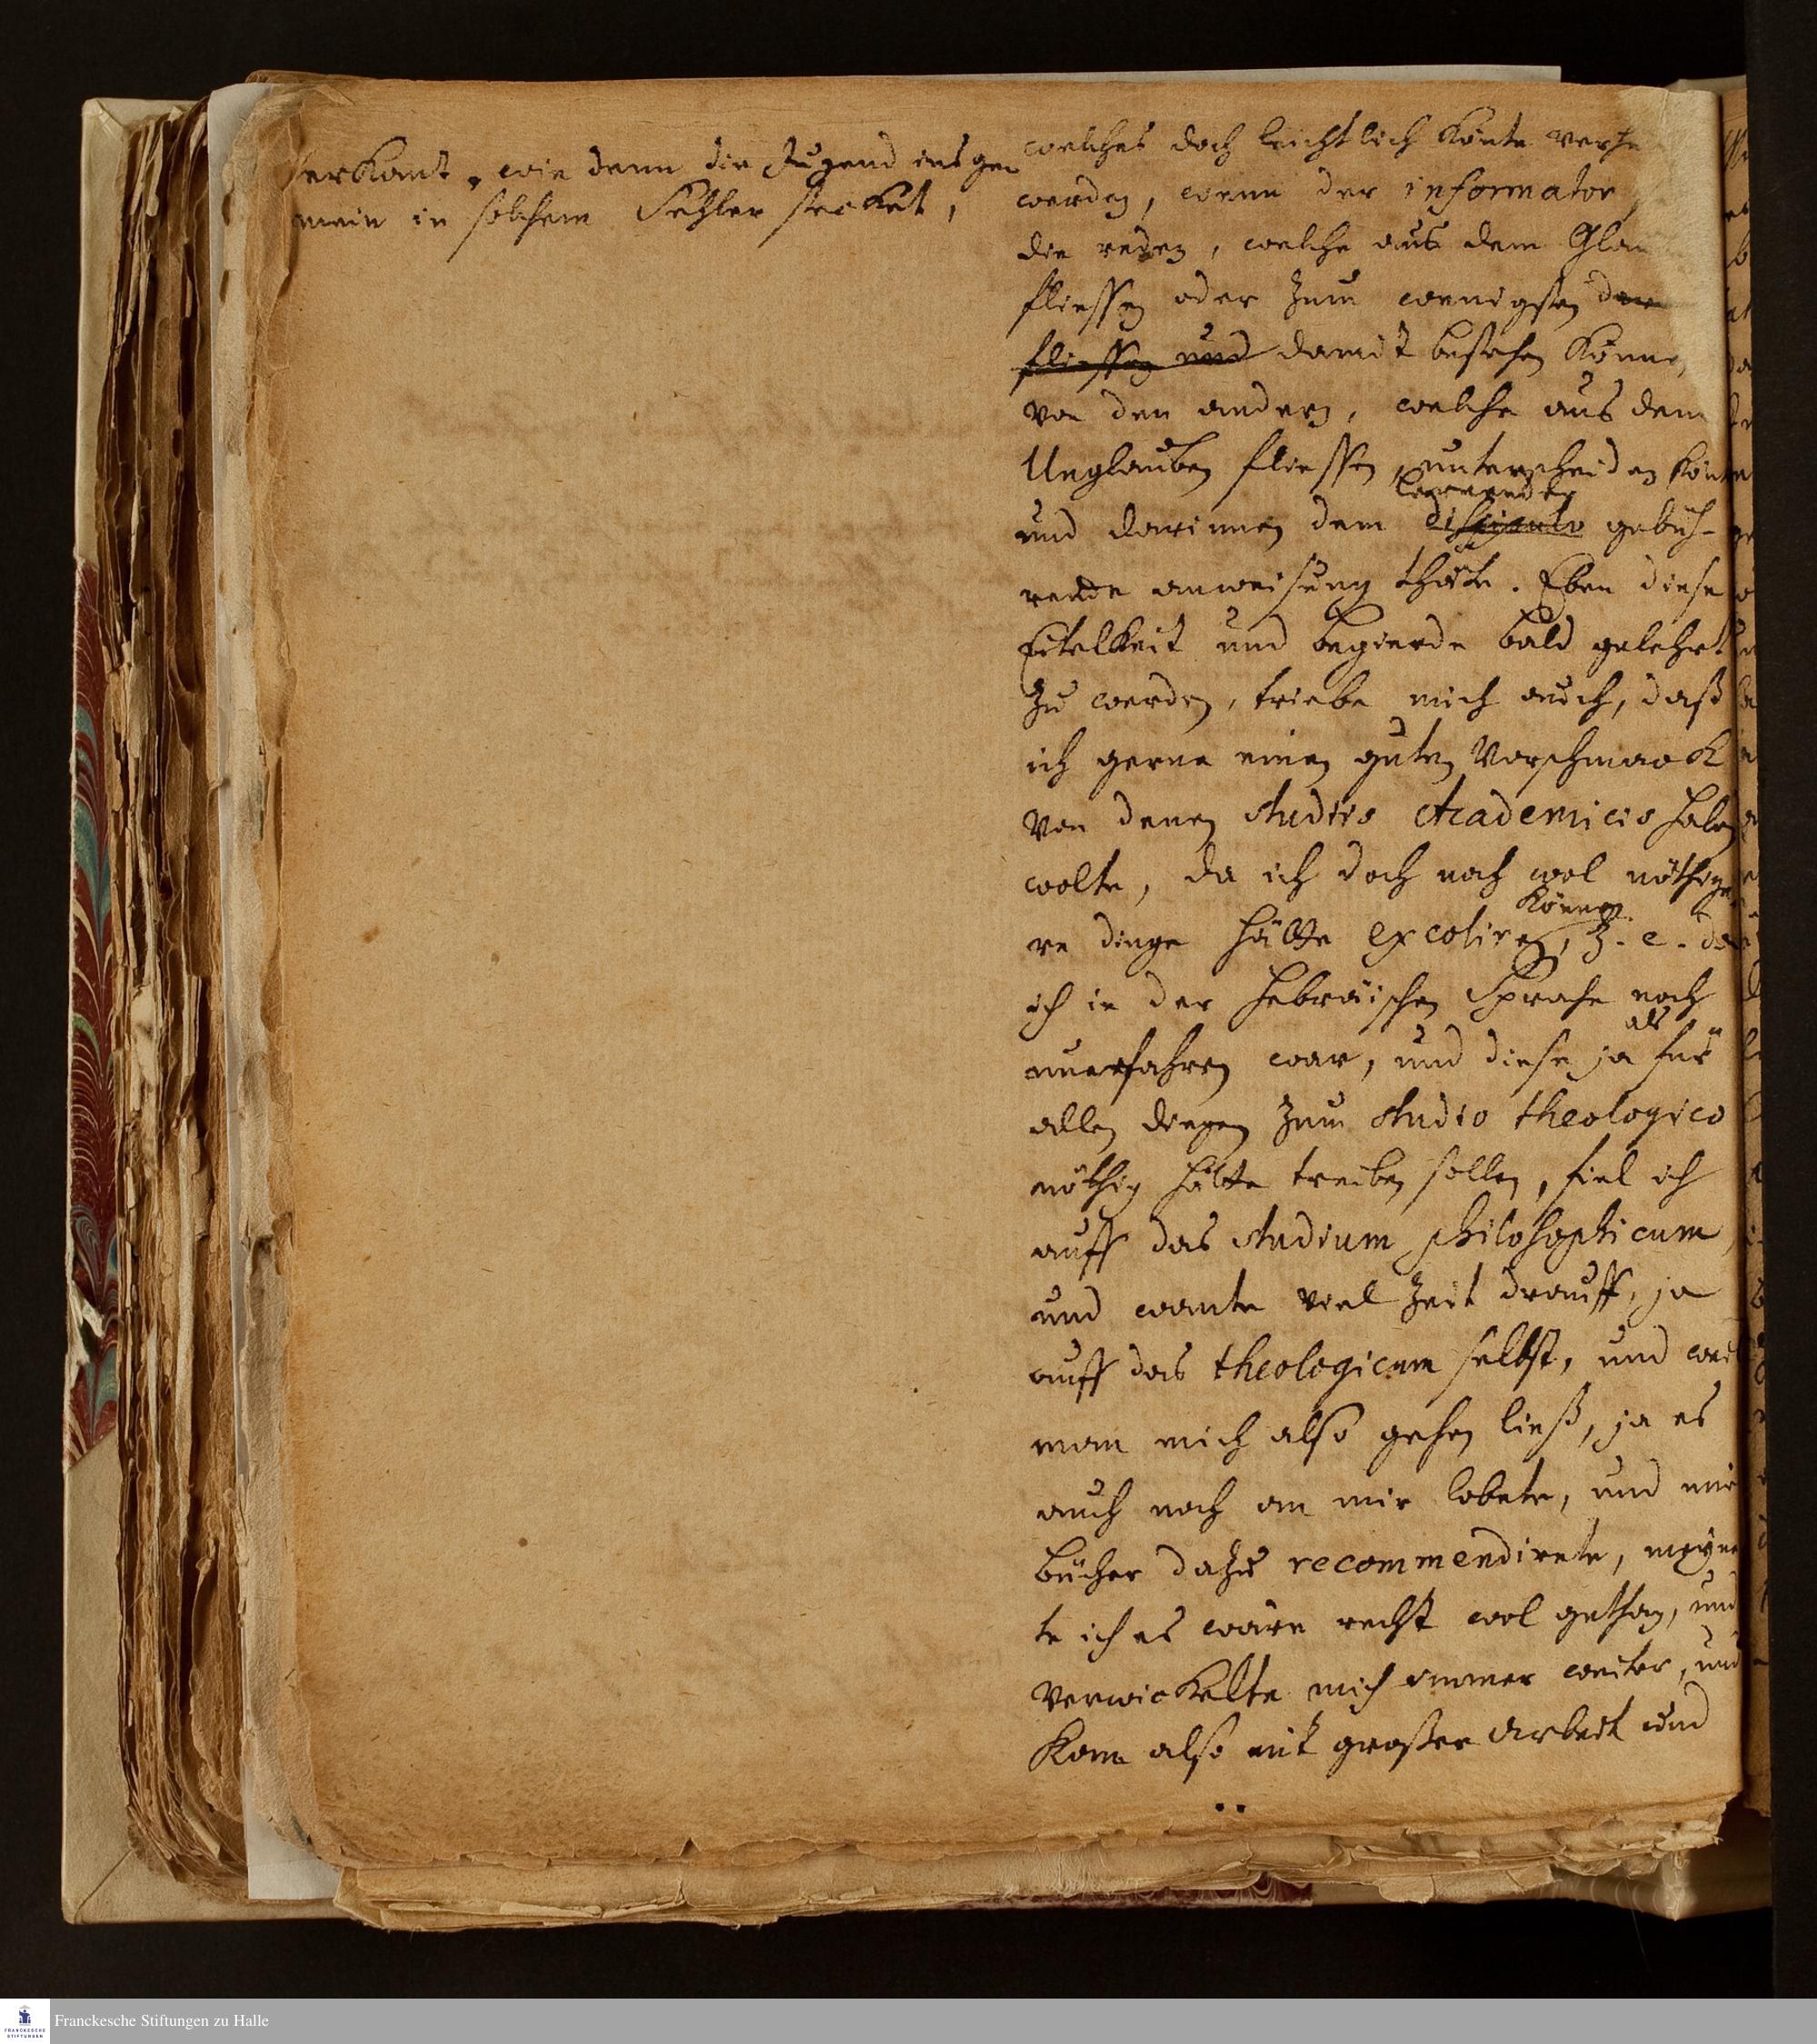 verkomt, wie denn die Jugend insge
mein in solchem Fehler stecket,
welches doch leichtlich könte verhü
werden, wenn der informator
die reden, welche aus dem Glau
fliessen oder zum wenigsten
fliessen und damit bestehen können,
von den andern, welche aus dem
Unglauben fliessen, unterscheiden könte
lernenden
und darinnen dem discipulo gebüh-
rende anweisung thäte. Eben diese
Eitelkeit und begierde bald gelehrt
zu werden, triebe mich auch, daß
ich gerne einen guten Vorschmack
von denen studiis Academicis haben
wolte, da ich doch noch wol nöthige
können
re dinge hätte excoliren, z. e. da
ich in der Hebräischen Sprache noch
als
unerfahren war, und diese ja für
allen dingen zum studio theologico
nöthig hätte treiben sollen, fiel ich
auff das studium philosophicum,
und wante viel Zeit drauff, ja
auff das theologicum selbst, und weil
man mich also gehen ließ, ja es
auch noch an mir lobete, und mir
bücher dazu recommendirete, meyne
te ich es wäre recht wol gethan, und
verwickelte mich immer weiter, und
Kam also mit grosser Arbeit und
Franckesche Stiftungen zu Halle
FRANCKESCHE
STIFTUNGEN